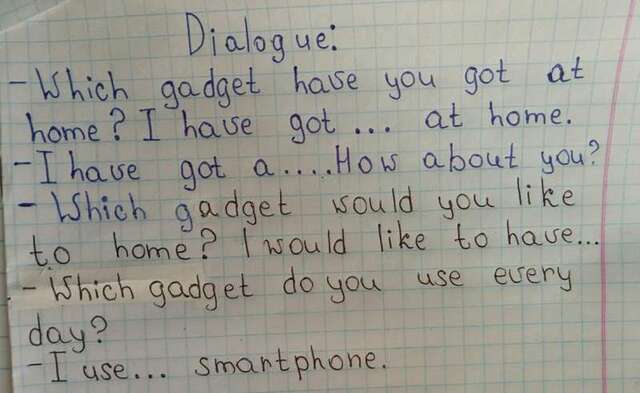 Dialogue:
- Which gadget have you got at
home? I have got ... at home.
- I have got a.....How about you?
- Which gadget would you like
to home? I would like to have...
- Which gadget do you use every
day?
- I use... smartphone.